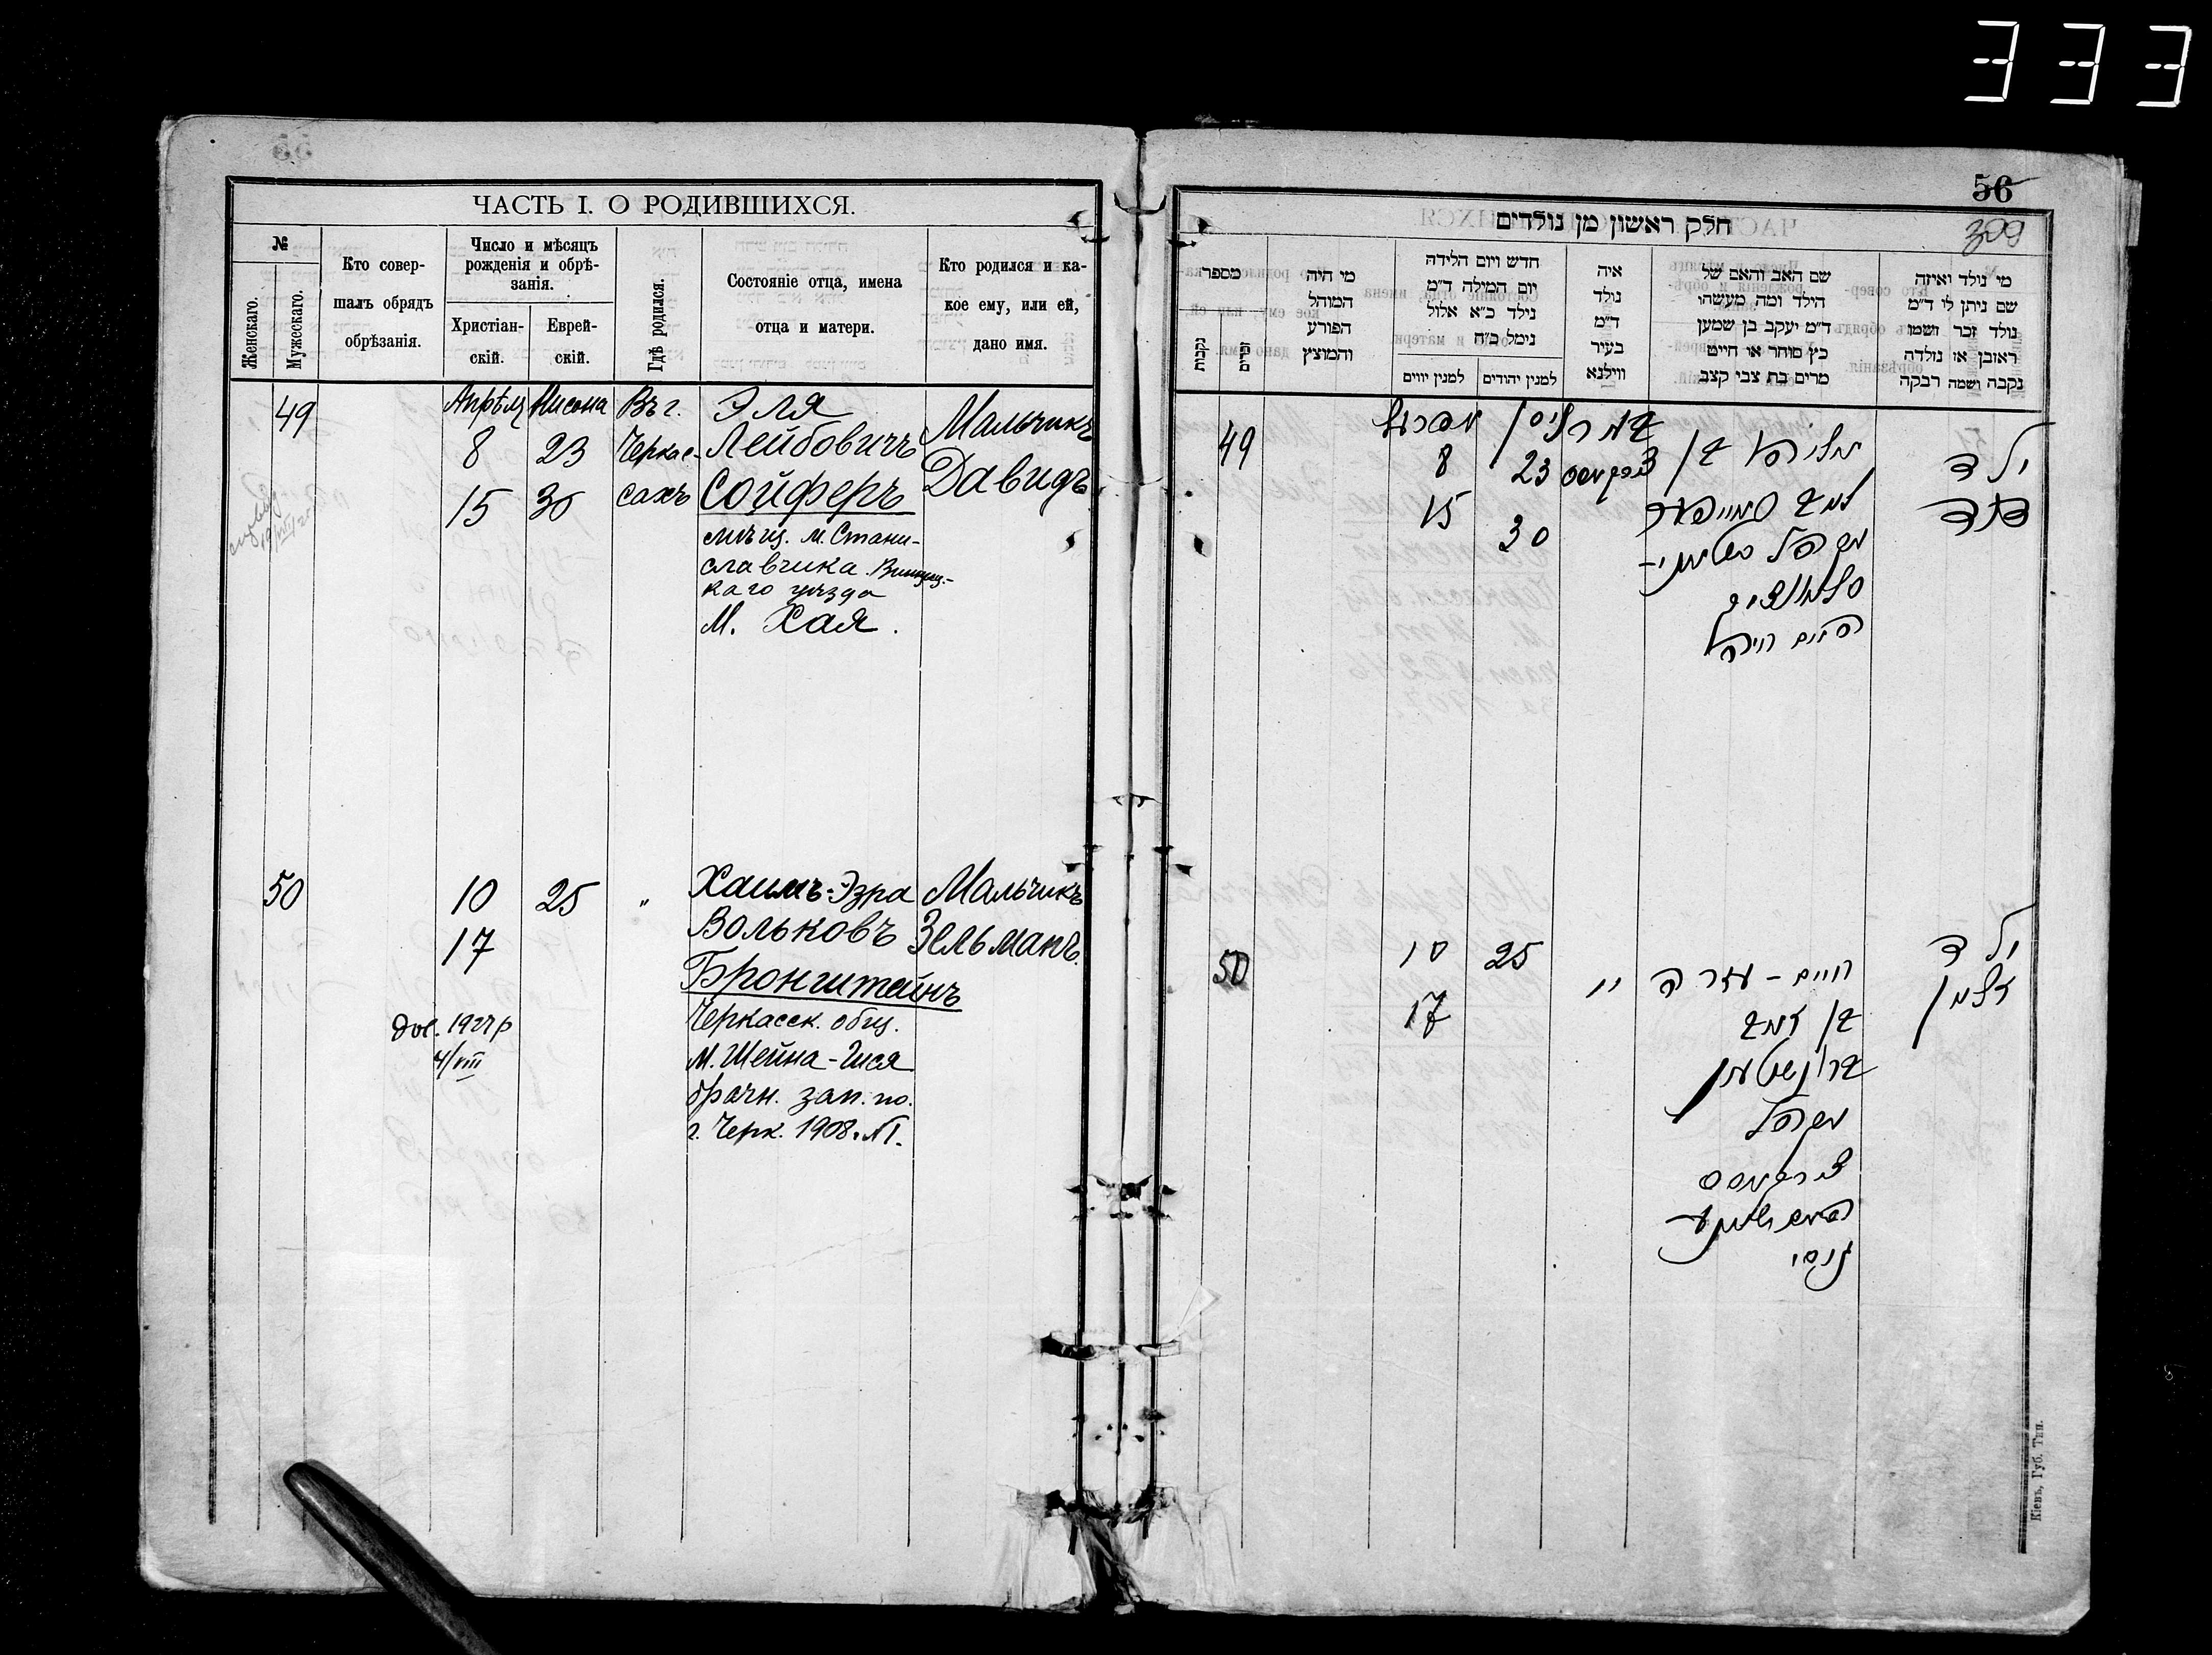 333
ЧАСТЬ I. О РОДИВШИХСЯ.
№
Женскаго.
Мужескаго.
Кто совер-
шалъ обрядъ
обрѣзанія.
Число и мѣсяцъ
рожденія и обрѣ-
занія.
Христіан-
скій.
Еврей-
скій.
Гдѣ родился.
Состояніе отца, имена
отца и матери.
Кто родился и ка-
кое ему, или ей,
дано имя.
49
Апрѣля
8
15
Нисона
23
30
Въ г.
Черкас-
сахъ
Эля
Лейбовичъ
Сойферъ
мѣщ. м. Стани-
славчика. Винниц.-
каго уѣзда
М. Хая.
Мальчикъ
Давидъ
50
10
17
25
"
Хаимъ-Эзра
Вольковъ
Бронштейнъ
Черкасск. общ.
М. Шейна-Гися
брачн. зап. по.
г. Черк. 1908. №1.
Мальчикъ
Зельманъ.
1927 р
4/VIII
56
309
חלק ראשון מן נולדים
מספר
נקבות
זכרים
מי היה
המוהל
הפורע
והמוצץ
חדש ויום הלידה
יום המילה ד"מ
נילד כ"א אלול
נימל כ"ח
למנין יווים
למנין יהודים
איה
נולד
ד"מ
בעיר
ווילנא
שם האב והאם של
הילד ומה מעשהו
ד"מ יעקב בן שמען
כץ סוחר או חייט
מרים בת צבי קצב
מי נולד ואיזה
שם ניתן לו ד"מ
נולד זכר ושמו
ראובן או נולדה
נקבה ושמה רבקה
49
8
15
ניסן
23
30
אליהו בן
ילד
דוד
50
10
17
25
"
חיים - עזרה
בן זאב
בראנשטיין
ילד
זלמן
Кіевъ, Губ. Тип.